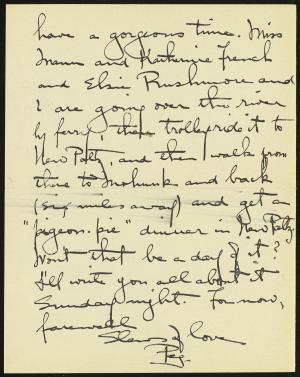 have a gorgeous time. Miss
Mann and Katherine French
and Elsie Rushmore and
I are going over the river
by ferry, then trolley ride it to
New Paltz, and then walk from
there to Mohunk and back
(six miles away) and get a
"pigeon-pie" dinner in New Paltz.
Won't that be a day of it?
I'll write you all about it
Sunday night. For now,
farewell
Slews of love
Peg.